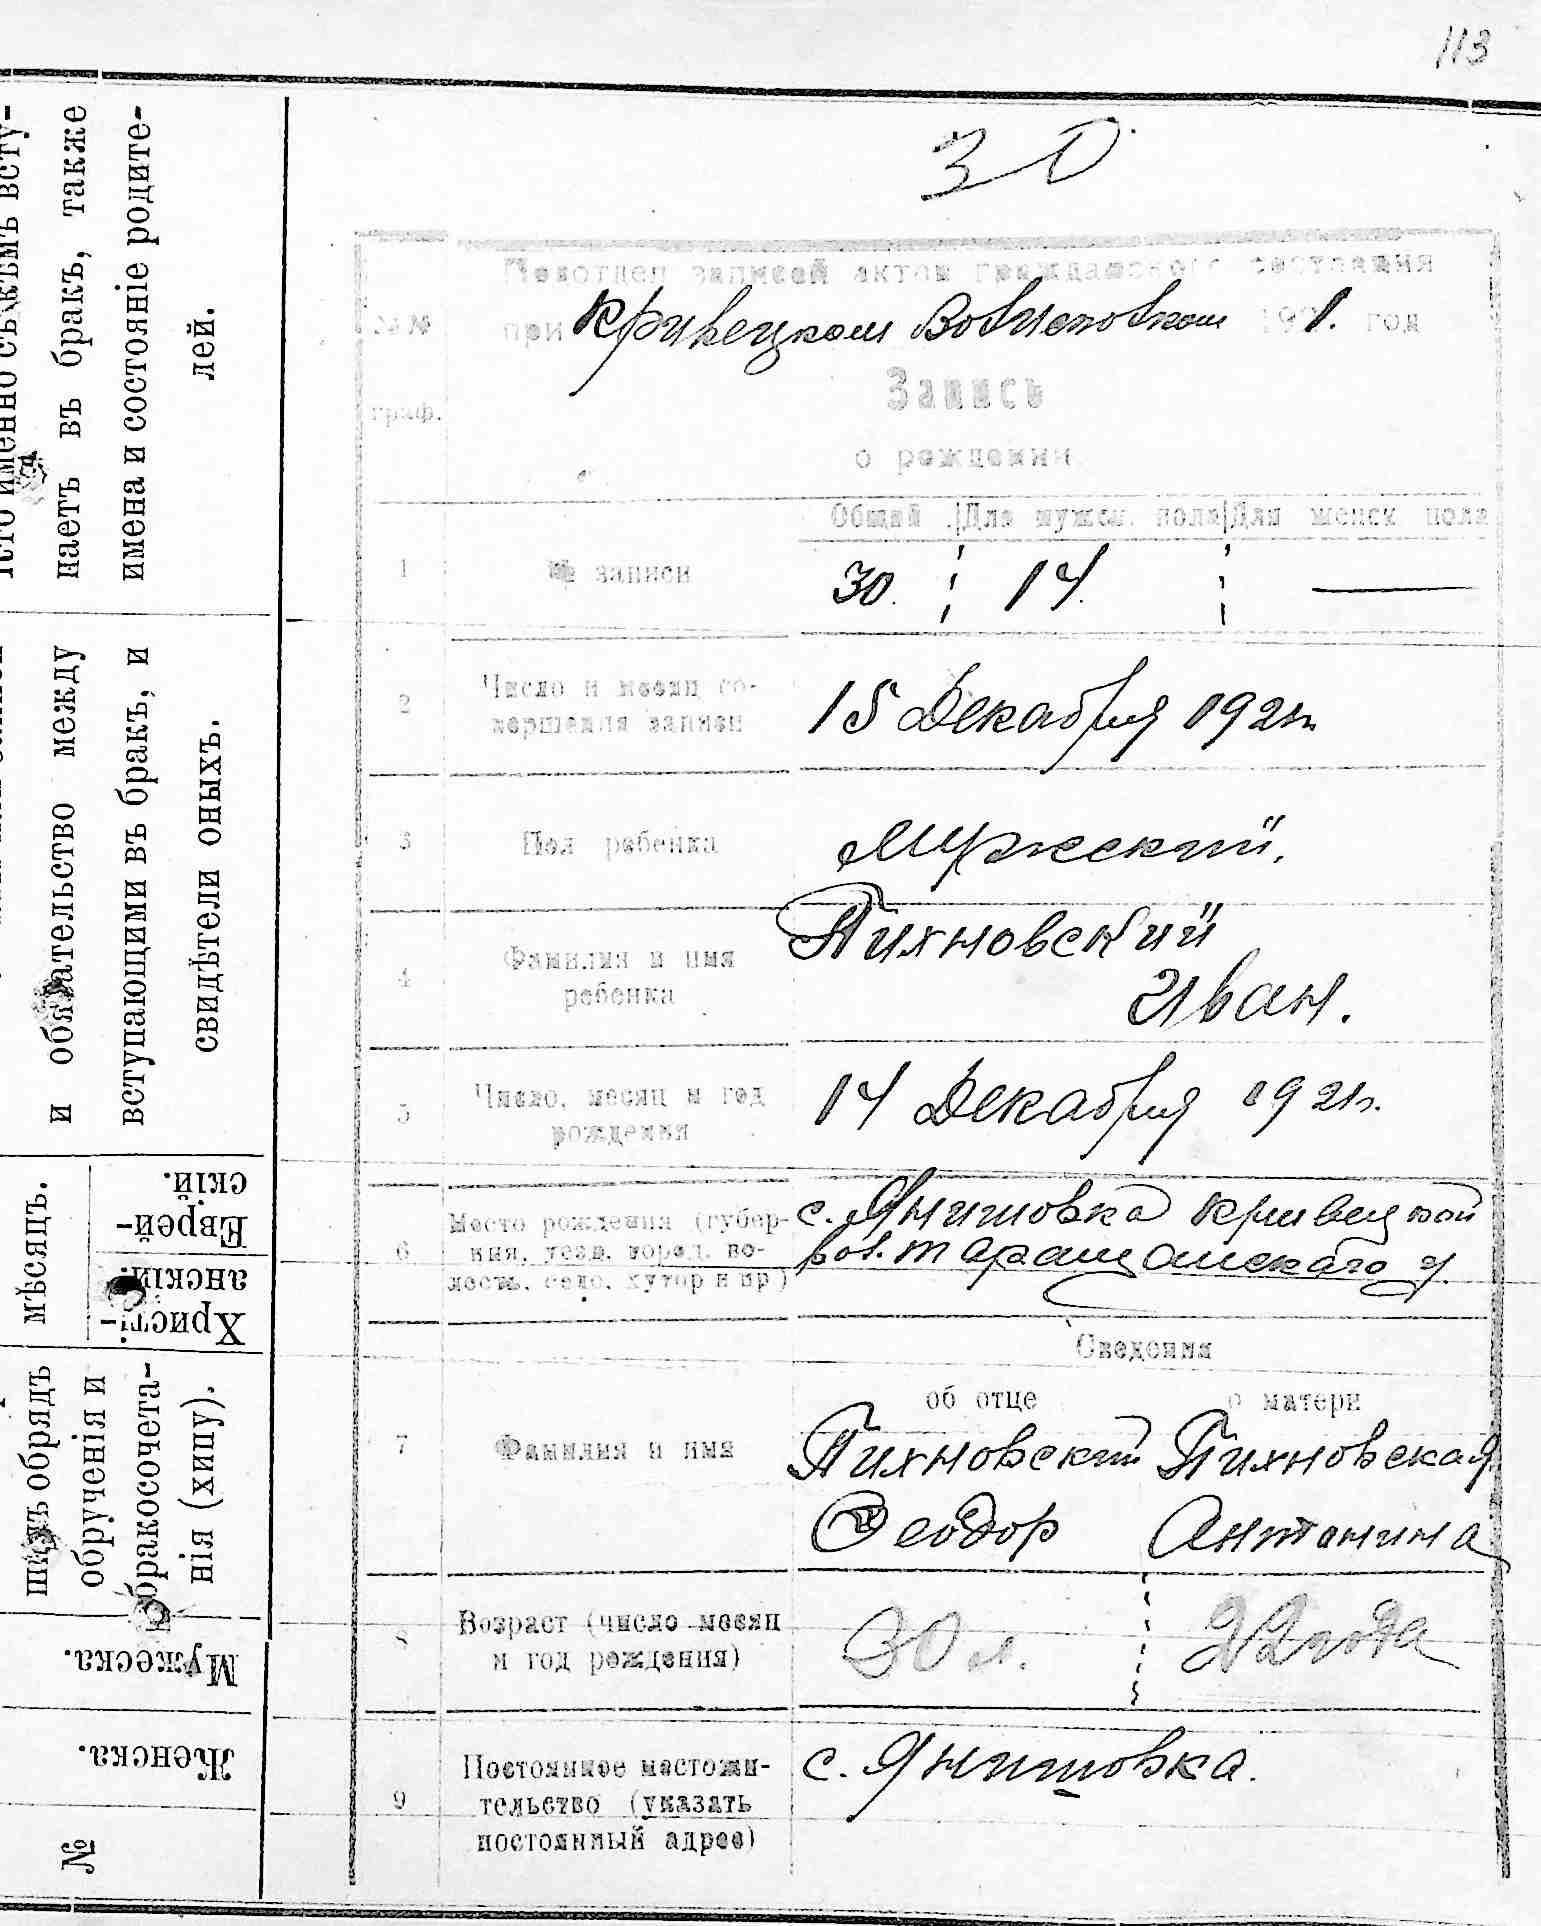 113
30
Подотдел записей актов гражданского состояния
при Кривецком Волисполкоме 1921. год
№№ граф.
Запись
о рождении
Общий Для мужск. пола Для женск пола
1 № записи 30. 14. —
2 Число и месяц со-
вершения записи
15 Декабря 1921г.
3 Пол ребенка мужеский.
4 Фамилия и имя
ребенка
Пихновский
Иван.
5 Число, месяц и год
рождения
14 Декабря 1921г.
6 Место рождения (губер-
ния, уезд, город, во-
лость, село, хутор и пр)
с. Янишовка Кривецкой
вол. Таращанского у.
Сведения
об отце о матери
7 Фамилия и имя
Пихновский Пихновская
Феодор Антонина
8 Возраст (число месяц
и год рождения)
30 л. 22 года
9 Постоянное местожи-
тельство (указать
постоянный адрес)
с. Янишовка.
наетъ въ бракъ, также
имена и состояніе родите-
лей.
и обязательство между
вступающими въ бракъ, и
свидѣтели оныхъ.
мѣсяцъ.
Христі-
анскій.
Еврей-
скій.
обрядъ
обрученія и
бракосочета-
нія (хипу).
Мужеска.
Женска.
№